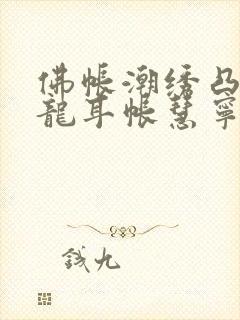 佛帐潮绣凸
龍耳帐慧寧
钱九